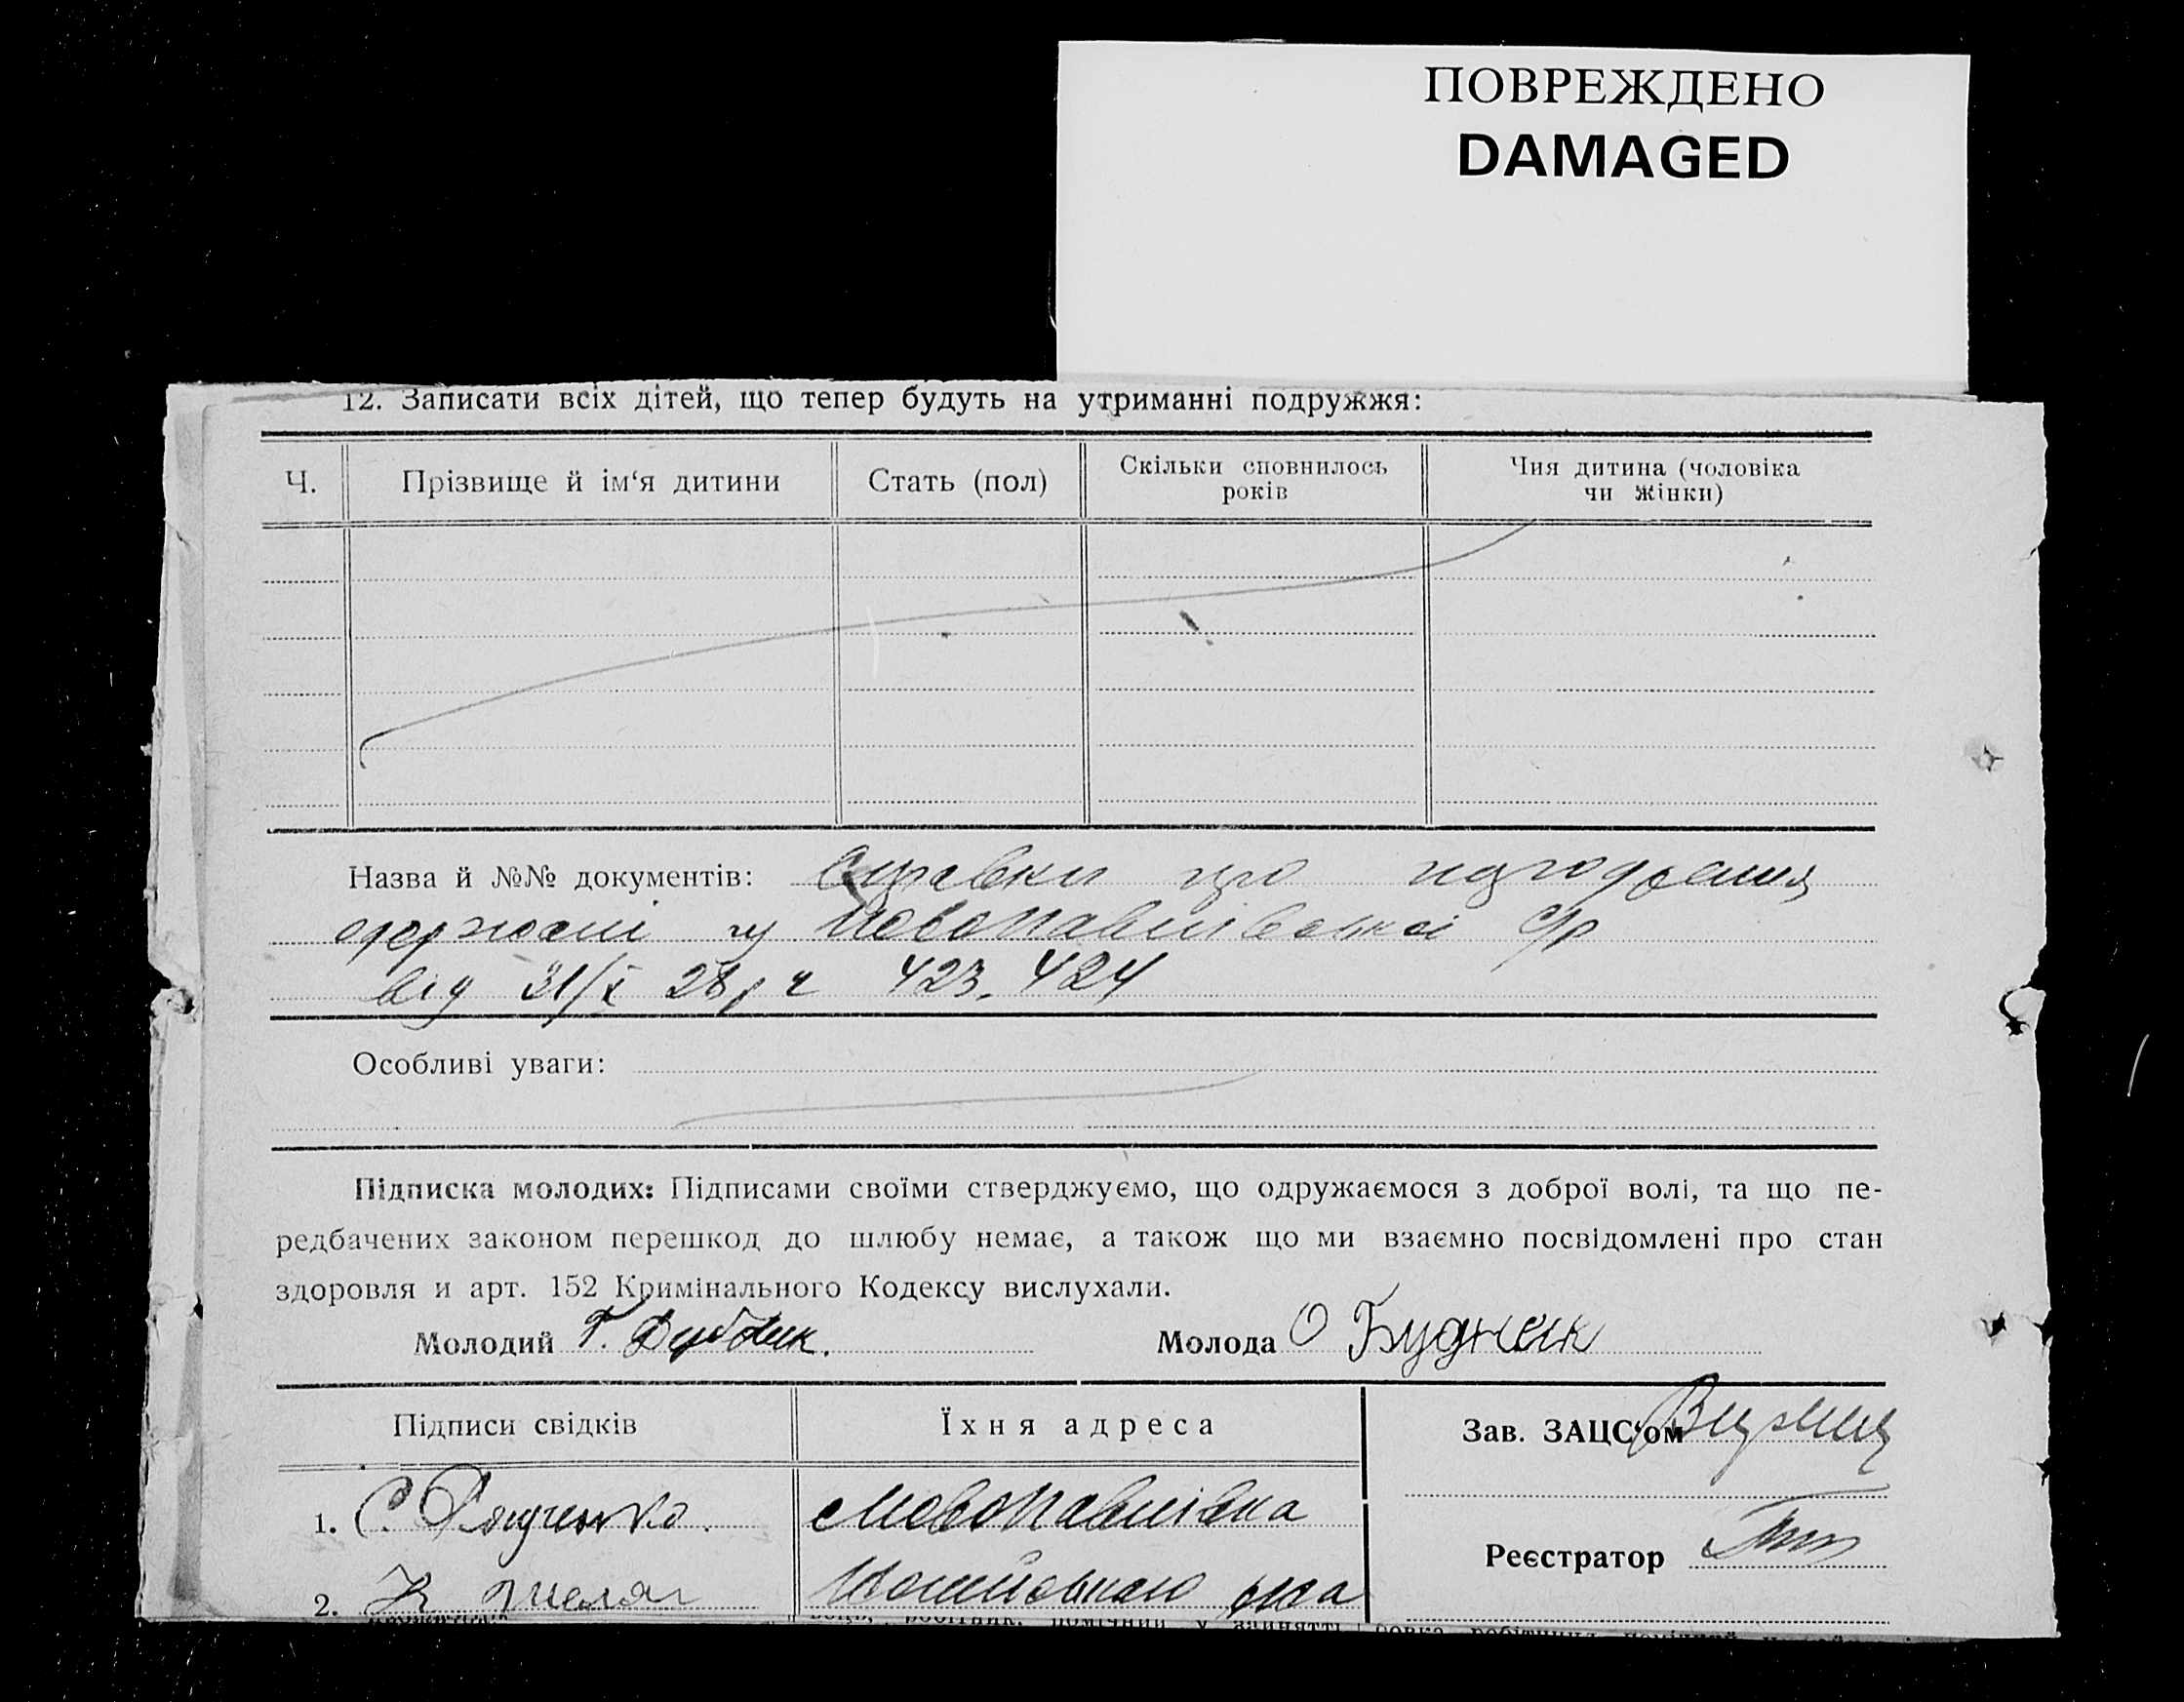 ПОВРЕЖДЕНО
DAMAGED
12. Записати всіх дітей, що тепер будуть на утриманні подружжя:
Ч. Прізвище й ім‘я дитини Стать (пол) Скільки сповнилось років Чия дитина (чоловіка чи жінки)
Назва й №№ документів: Справки про народження
одержані у Новопавлівській с/р
від 31/X 28 р ч 423. 424
Особливі уваги:
Підписка молодих: Підписами своїми стверджуємо, що одружаємося з доброї волі, та що пе-
редбачених законом перешкод до шлюбу немає, а також що ми взаємно посвідомлені про стан
здоровля и арт. 152 Кримінального Кодексу вислухали.
Молодий Г. Молода О Будник
Підписи свідків Їхня адреса Зав. ЗАЦС‘ом
1. С. Новопавлівка
Реєстратор
2. К р-на